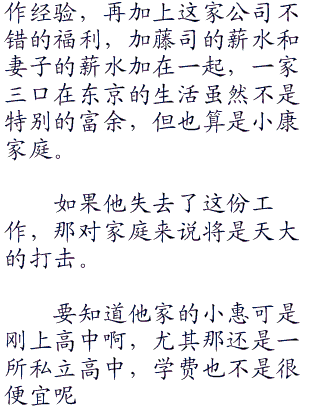 作经验，再加上这家公司不
错的福利，加藤司的薪水和
妻子的薪水加在一起，一家
三口在东京的生活虽然不是
特别的富余，但也算是小康
家庭。
如果他失去了这份工
作，那对家庭来说将是天大
的打击。
要知道他家的小惠可是
刚上高中啊，尤其那还是一
所私立高中，学费也不是很
便宜呢